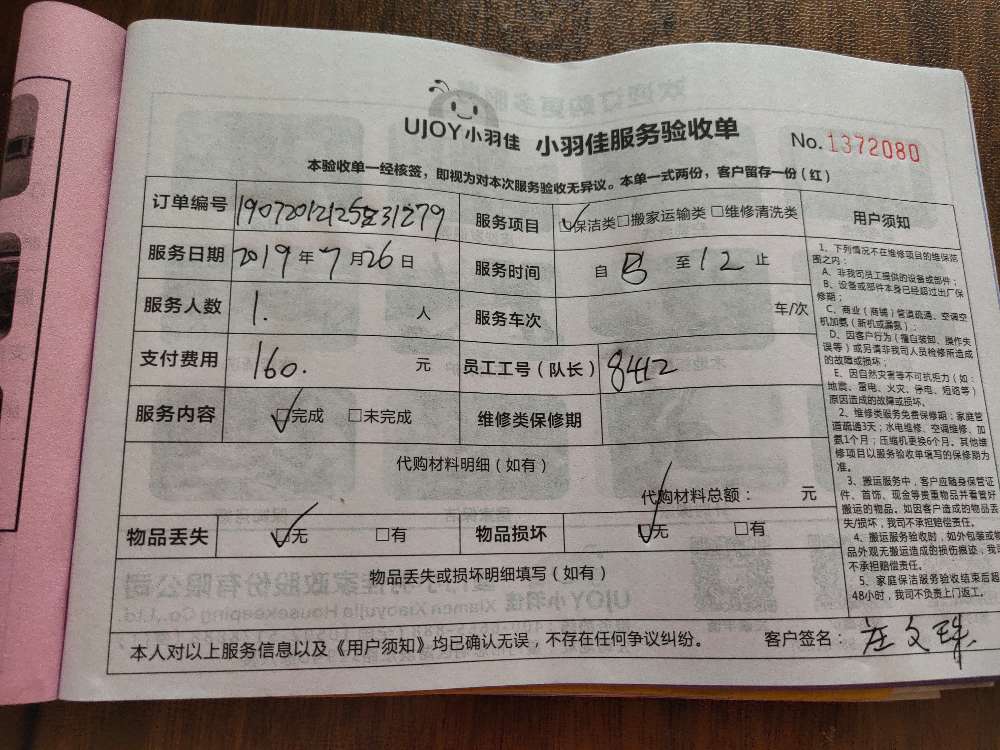 UJOY小羽佳 小羽佳服务验收单 No. 1372080
本验收单一经核签，即视为对本次服务验收无异议。本单一式两份，客户留存一份（红）
订单编号 服务项目 保洁类 □搬家运输类 □维修清洗类
服务日期 2019年7月26日 服务时间 自 至 12 止
服务人数 1. 人 服务车次 车/次
支付费用 160. 元 员工工号（队长） 8412
服务内容 □完成 □未完成 维修类保修期
代购材料明细（如有）
代购材料总额： 元
物品丢失 □无 □有 物品损坏 □无 □有
物品丢失或损坏明细填写（如有）
本人对以上服务信息以及《用户须知》均已确认无误，不存在任何争议纠纷。 客户签名：
用户须知
1、下列情况不在维修项目的维保范
围之内：
A、非我司员工提供的设备或部件；
B、设备或部件本身已经超过出厂保
修期；
C、商业（商铺）管道疏通、空调空
机加氨（新机或漏氨）；
D、因客户行为（擅自装卸、操作失
误等）或另请非我司人员检修所造成
的故障或损坏；
E、因自然灾害等不可抗拒力（如：
地震、雷电、火灾、停电、短路等）
原因造成的故障或损坏。
2、维修类服务免费保修期：家庭管
道疏通3天；水电维修、空调维修、加
氨1个月；压缩机更换6个月。其他维
修项目以服务验收单填写的保修期为
准。
3、搬运服务中，客户应随身保管证
件、首饰、现金等贵重物品并看管好
搬运的物品。如因客户造成的物品丢
失/损坏，我司不承担赔偿责任。
4、搬运服务验收时，如外包装或物
品外观无搬运造成的损伤痕迹，我司
不承担赔偿责任。
5、家庭保洁服务验收结束后超
48小时，我司不负责上门返工。